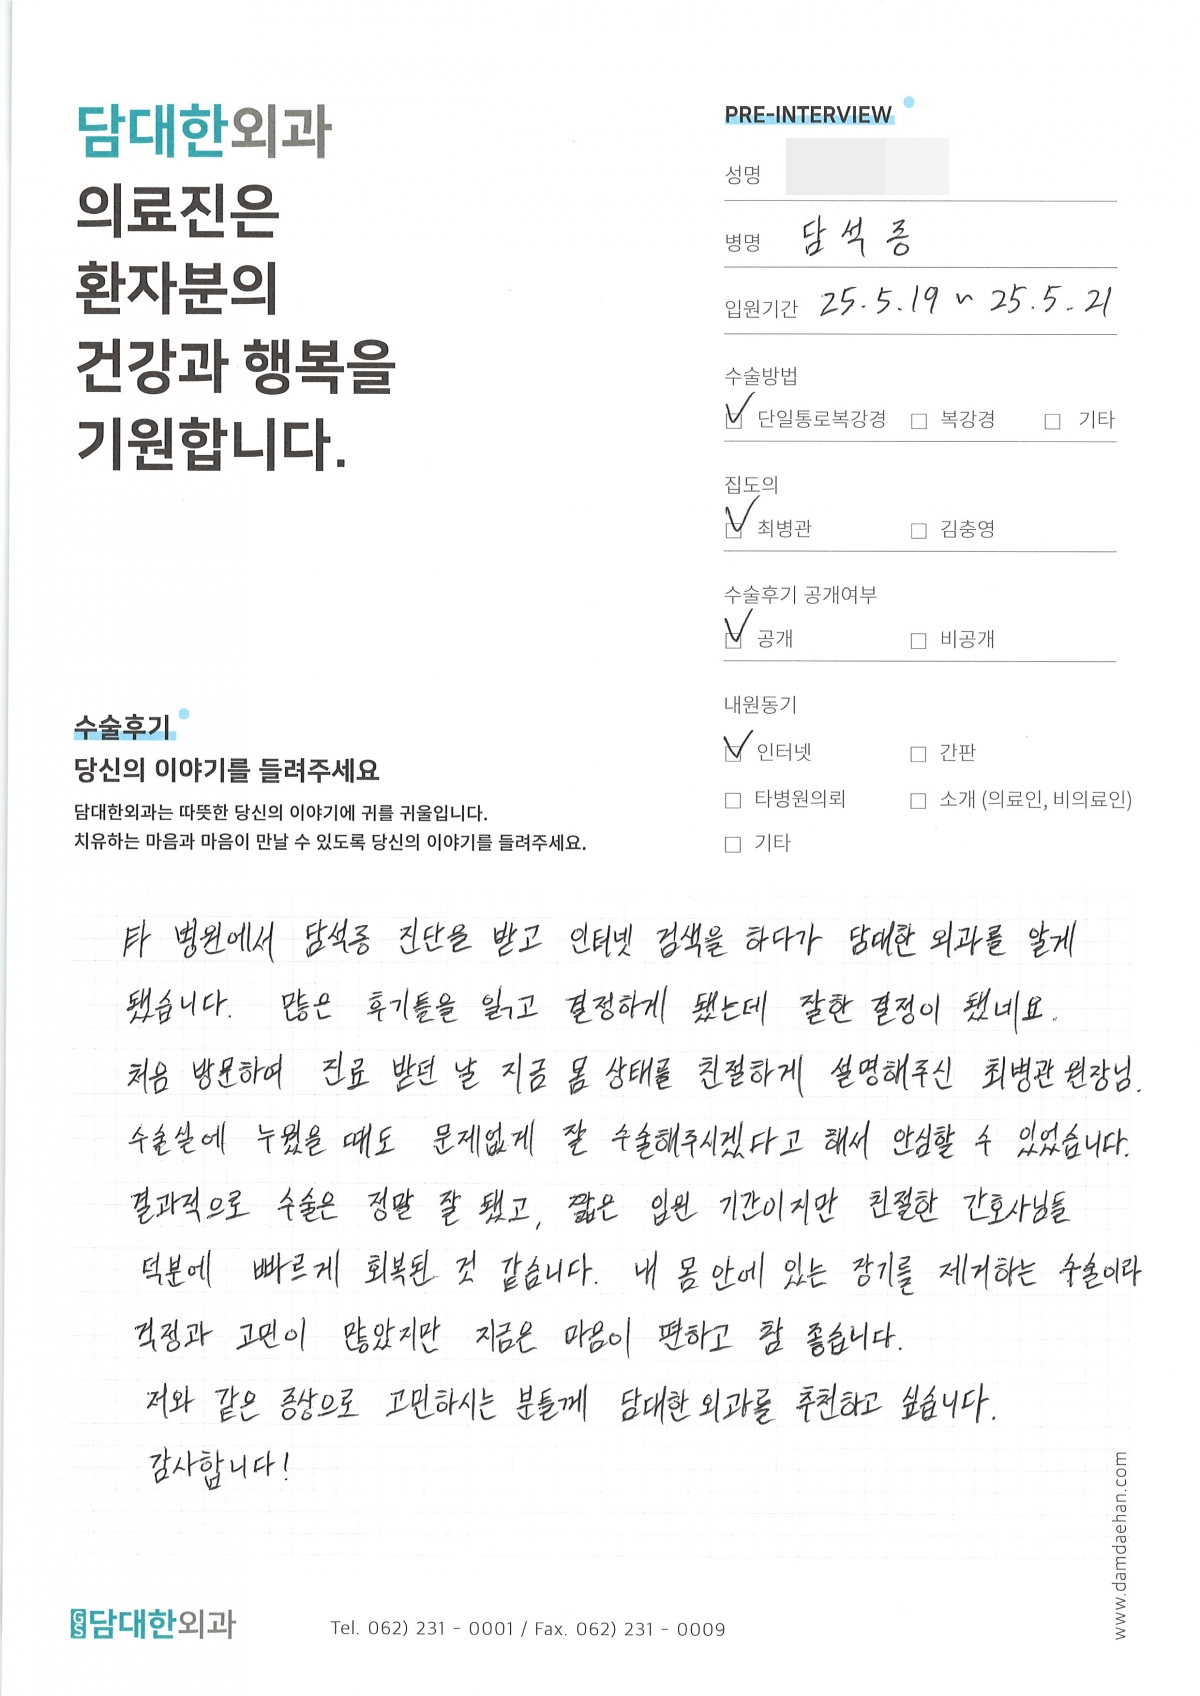 담대한외과
의료진은
환자분의
건강과 행복을
기원합니다.
PRE-INTERVIEW
성명
병명 담석증
입원기간 25.5.19 ~ 25.5.21
수술방법
☑ 단일통로복강경 □ 복강경 □ 기타
집도의
☑ 최병관 □ 김충영
수술후기 공개여부
☑ 공개 □ 비공개
내원동기
☑ 인터넷 □ 간판
□ 타병원의뢰 □ 소개 (의료인, 비의료인)
□ 기타
수술후기
당신의 이야기를 들려주세요
담대한외과는 따뜻한 당신의 이야기에 귀를 귀울입니다.
치유하는 마음과 마음이 만날 수 있도록 당신의 이야기를 들려주세요.
타 병원에서 담석증 진단을 받고 인터넷 검색을 하다가 담대한 외과를 알게
됐습니다. 많은 후기들을 읽고 결정하게 됐는데 잘한 결정이 됐네요.
처음 방문하여 진료 받던 날 지금 몸 상태를 친절하게 설명해주신 최병관 원장님.
수술실에 누웠을 때도 문제없게 잘 수술해주시겠다고 해서 안심할 수 있었습니다.
결과적으로 수술은 정말 잘 됐고, 짧은 입원 기간이지만 친절한 간호사님들
덕분에 빠르게 회복된 것 같습니다. 내 몸 안에 있는 장기를 제거하는 수술이라
걱정과 고민이 많았지만 지금은 마음이 편하고 참 좋습니다.
저와 같은 증상으로 고민하시는 분들께 담대한 외과를 추천하고 싶습니다.
감사합니다!
www.damdaehan.com
GS 담대한외과
Tel. 062) 231 - 0001 / Fax. 062) 231 - 0009